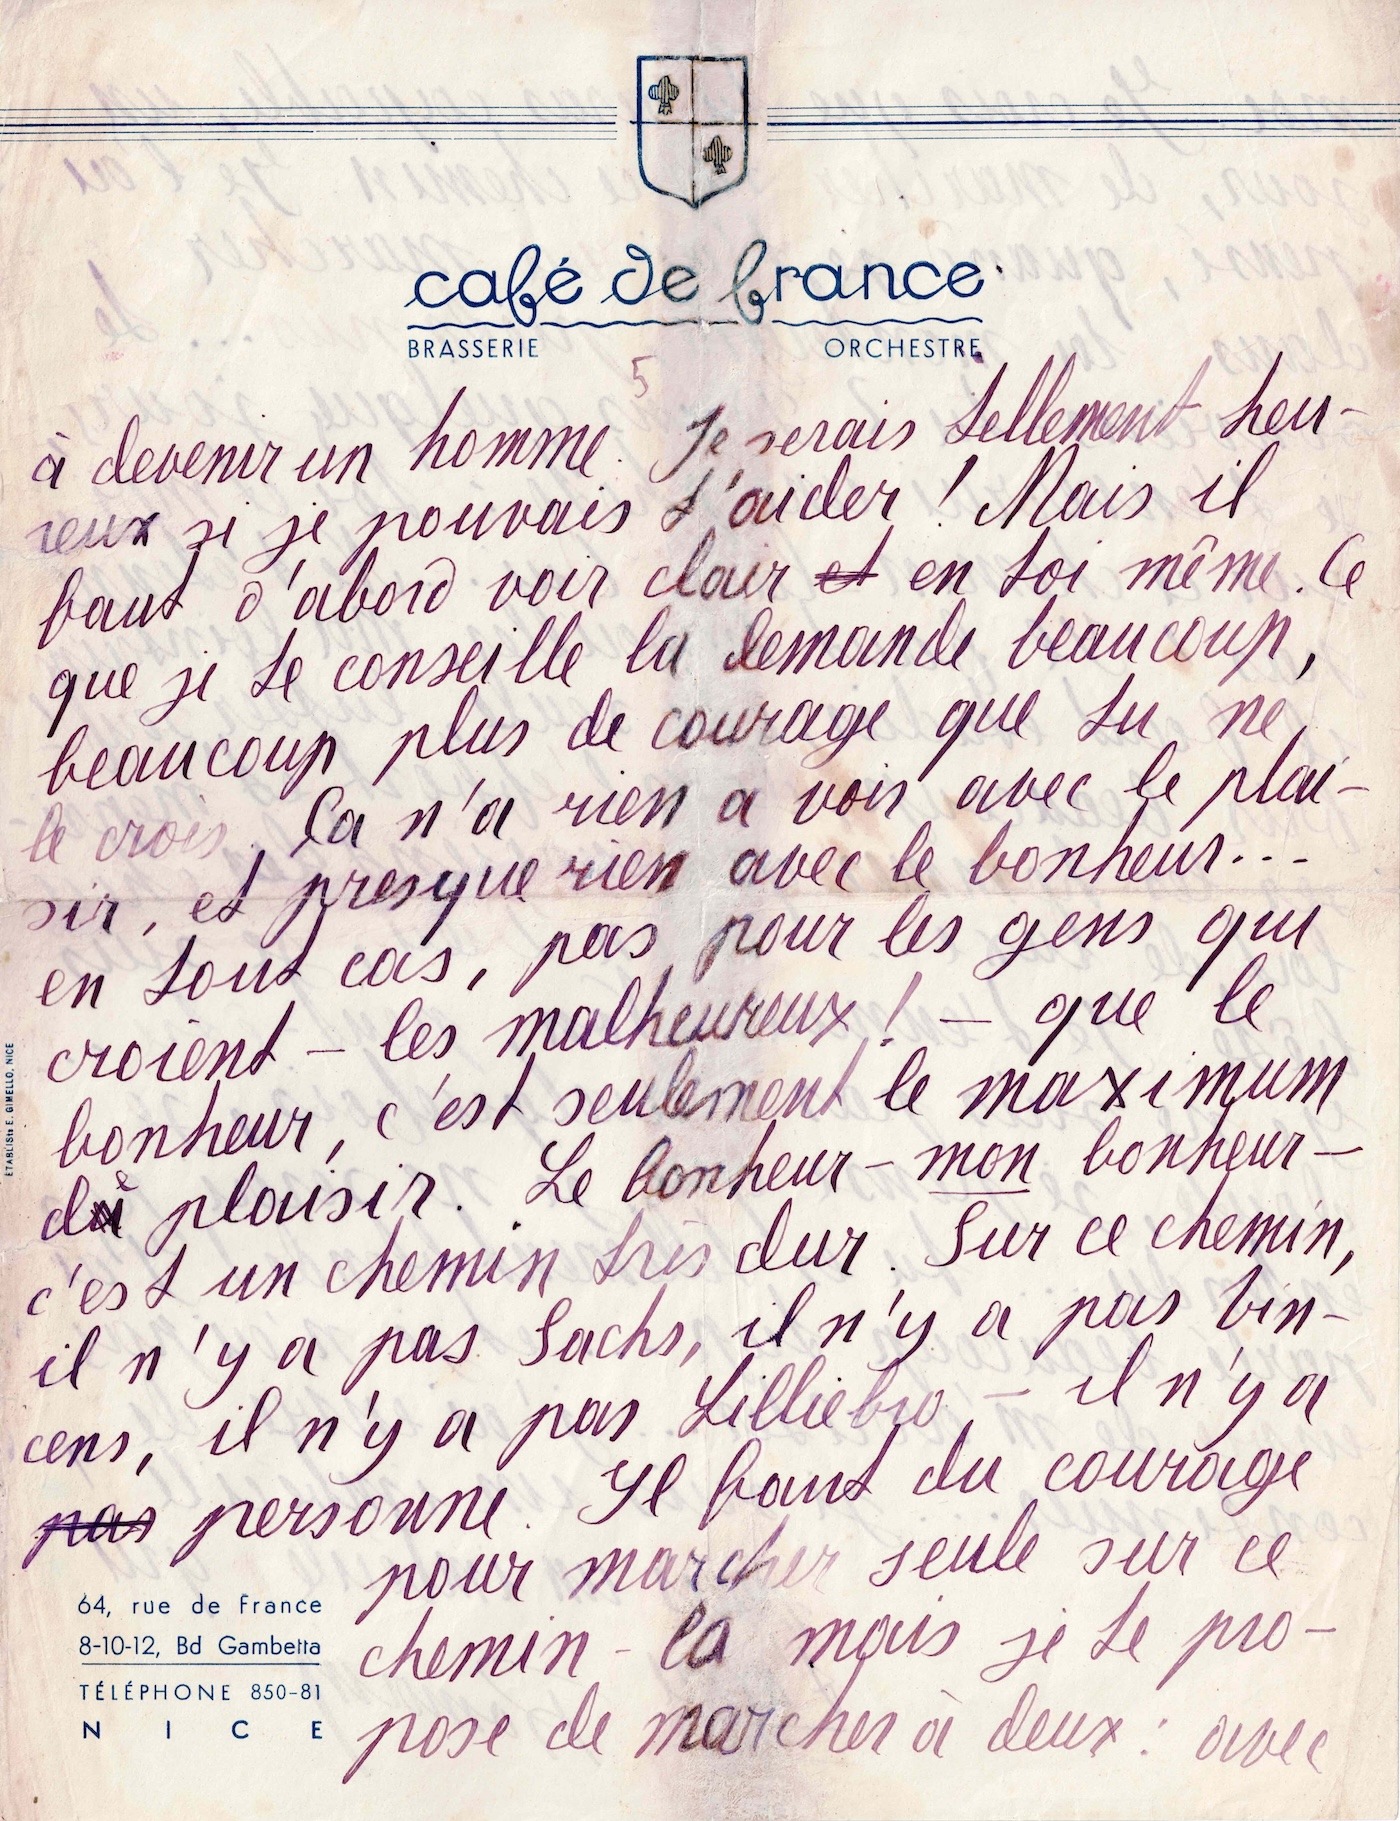 café de france
BRASSERIE ORCHESTRE
5
à devenir un homme. Je serais tellement heu-
reux si je pouvais t'aider ! Mais il
faut d'abord voir clair et en toi même. Ce
que je te conseille la demande beaucoup,
beaucoup plus de courage que tu ne
le crois. Ça n'a rien a voir avec le plai-
sir, et presque rien avec le bonheur...
en tout cas, pas pour les gens qui
croient – les malheureux ! – que le
bonheur, c'est seulement le maximum
du plaisir. Le bonheur – mon bonheur –
c'est un chemin très dur. Sur ce chemin,
il n'y a pas Sachs, il n'y a pas Vin-
cens, il n'y a pas Lilliebro – il n'y a
pas personne. Il faut du courage
pour marcher seule sur ce
chemin - la mais je te pro-
pose de marcher à deux : avec
64, rue de France
8-10-12, Bd Gambetta
TÉLÉPHONE 850-81
NICE
ETABLISts E. GIMELLO, NICE